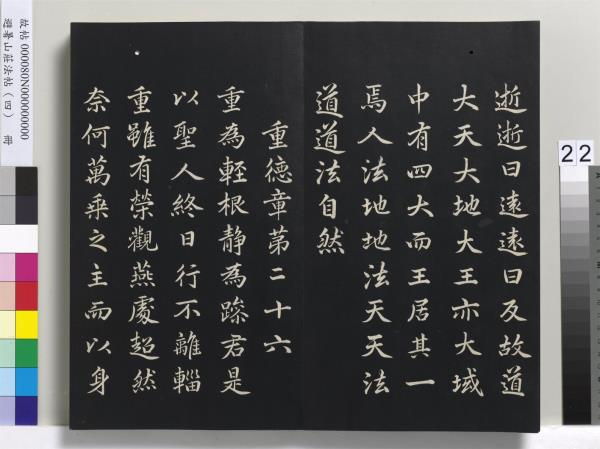 逝逝曰遠遠曰反故道
大天大地大王亦大域
中有四大而王居其一
焉人法地地法天天法
道道法自然
重德章第二十六
重為輕根静為躁君是
以聖人終日行不離輜
重雖有榮觀燕處超然
奈何萬乘之主而以身
故帖000080N000000000
避暑山莊法帖(四) 冊
22